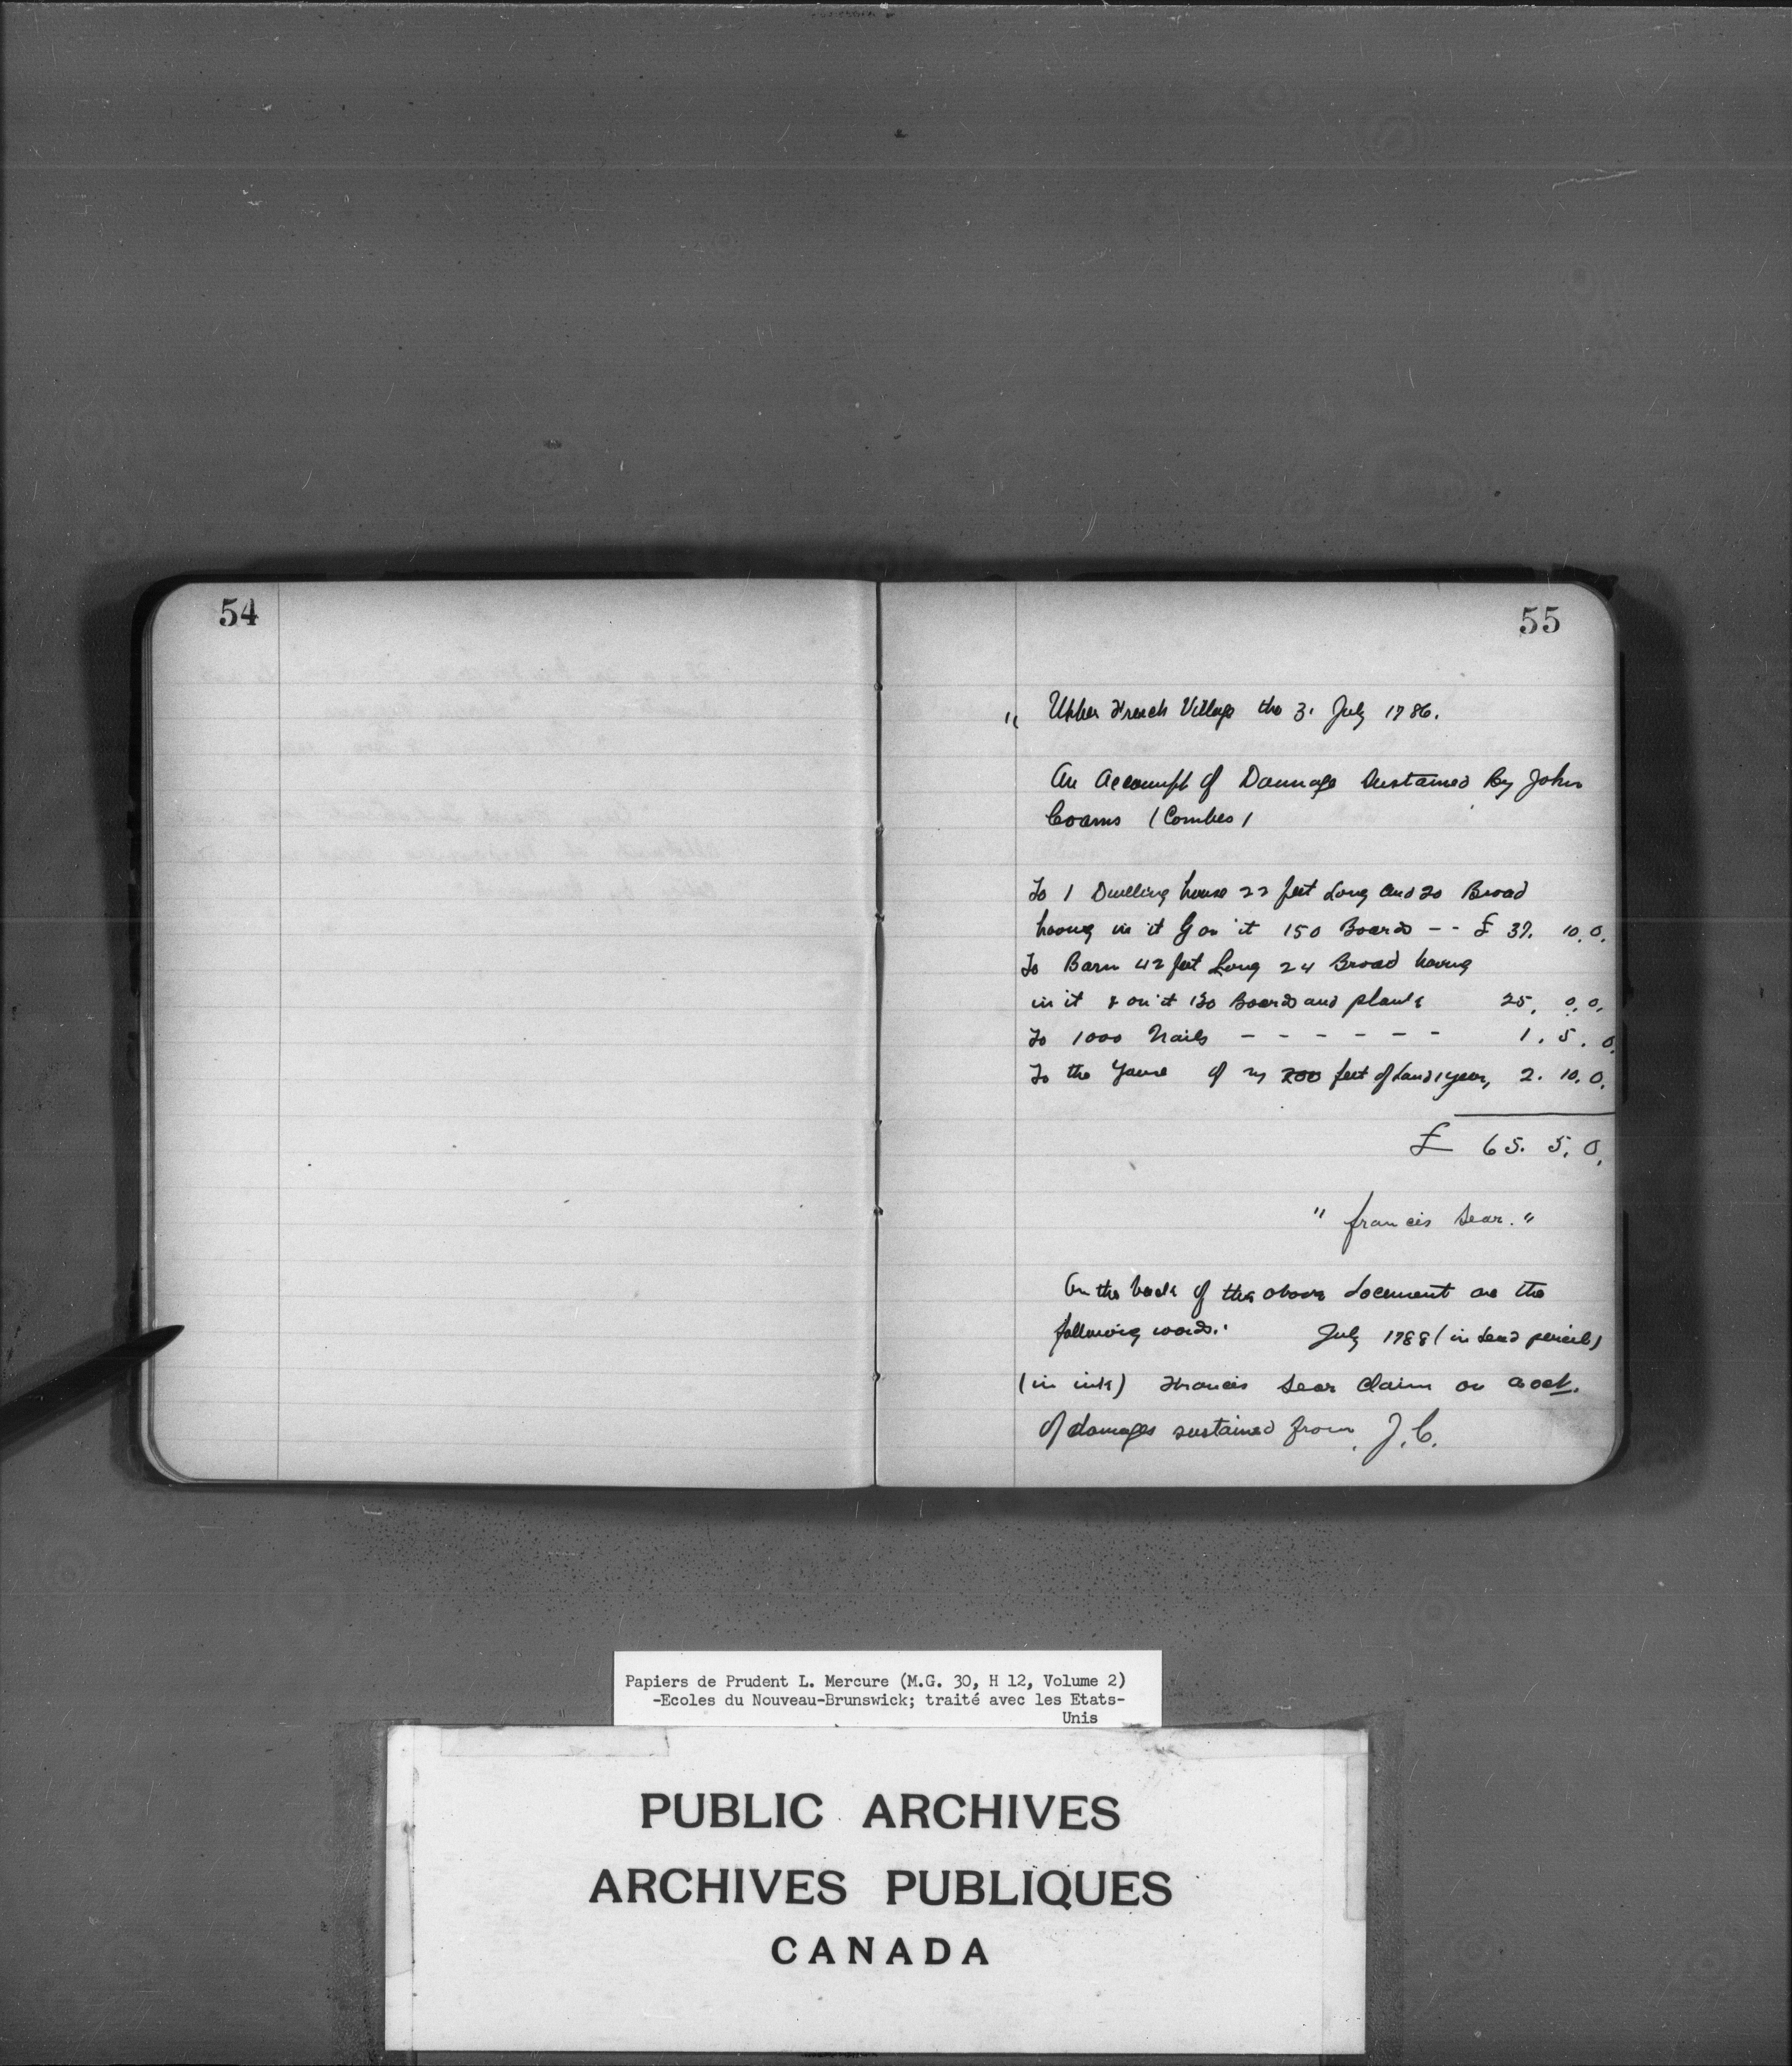 54
55
" Upper French Village the 3. July 1786.
An Accompt of Damage Sustained By John
Coams (Combes)
To 1 Dwelling house 22 feet Long and 20 Broad
having in it & on it 150 Boards -- £ 37. 10. 0.
To Barn 42 feet Long 24 Broad having
in it & on it 130 Boards and planks 25. 0. 0.
To 1000 Nails - - - - - - 1. 5. 0.
To the of my 200 feet of Land 1 year, 2. 10. 0.
£ 65. 5. 0.
" francis Sear. "
On the back of the above document are the
following words: July 1788 (in lead pencil)
(in ink) Francis Sear Claim on acct.
of damages sustained from J. C.
Papiers de Prudent L. Mercure (M.G. 30, H 12, Volume 2)
-Ecoles du Nouveau-Brunswick; traité avec les Etats-
Unis
PUBLIC ARCHIVES
ARCHIVES PUBLIQUES
CANADA